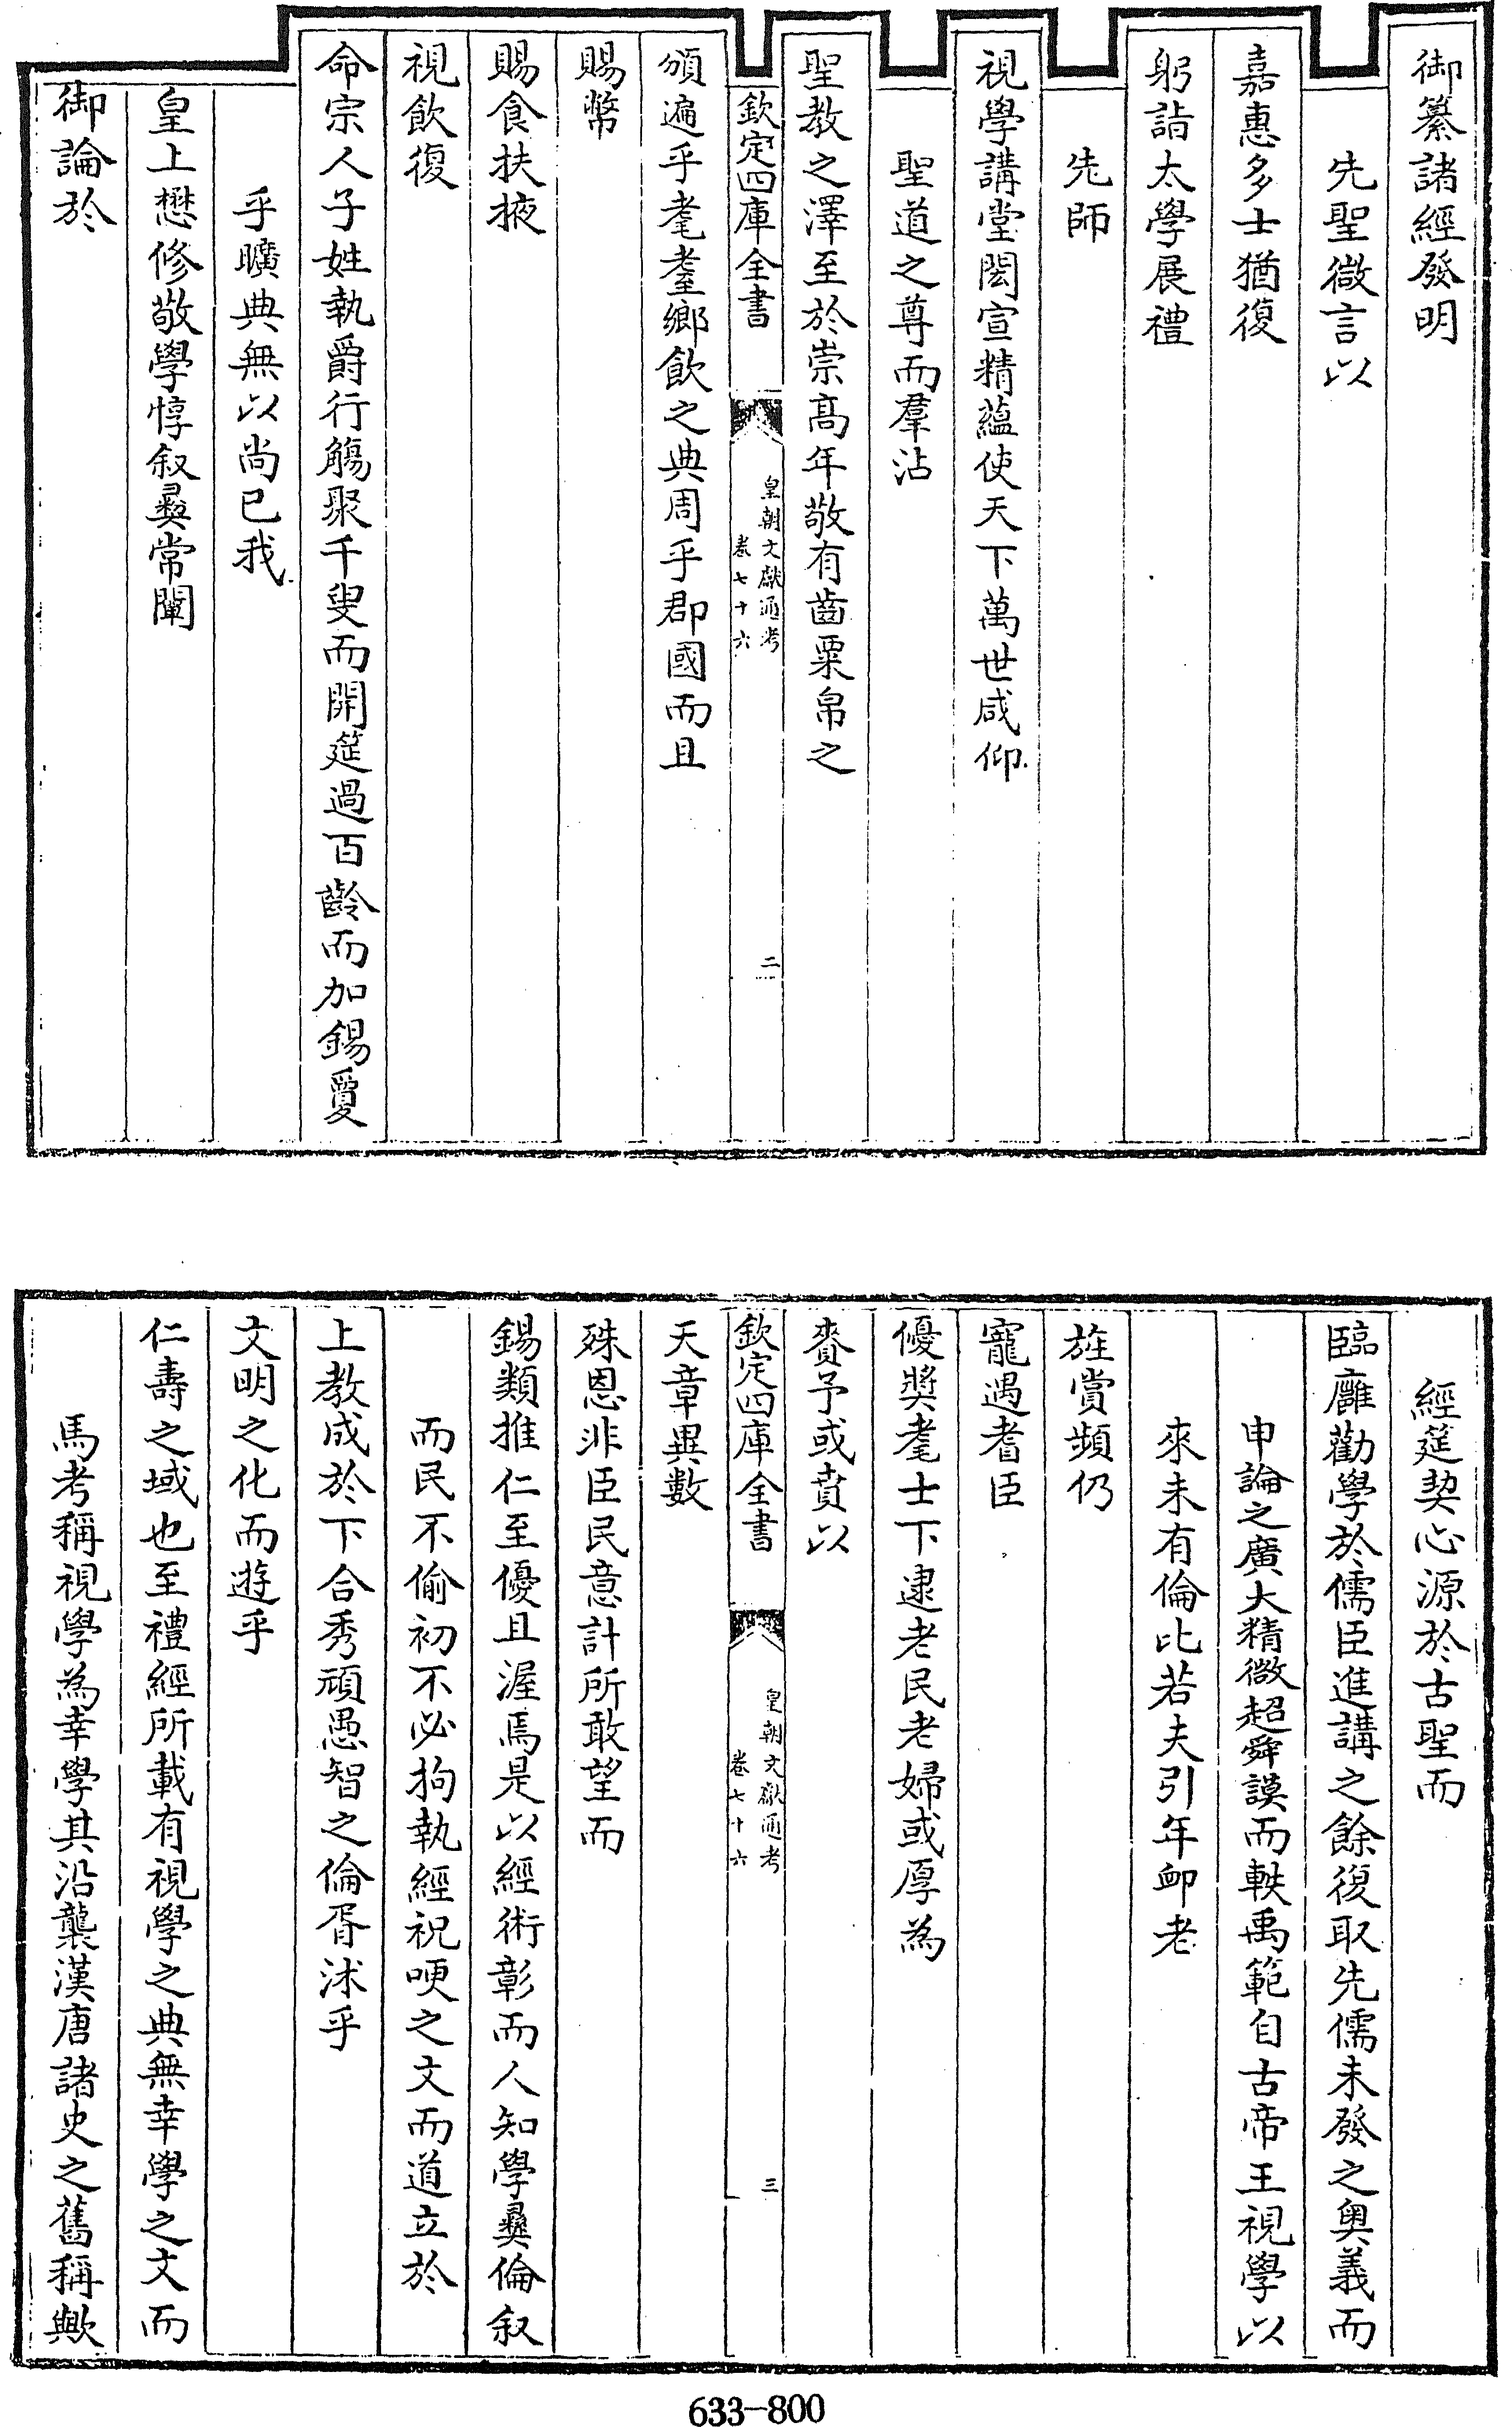 御纂諸經發明
先聖微言以
嘉惠多士猶復
躬詣太學展禮
先師
視學講堂闳宣精藴使天下萬世咸仰
聖道之尊而羣沾
聖教之澤至於崇髙年敬有齒粟帛之
欽定四庫全書
皇朝文獻通考
卷七十六
二
頒遍乎耄耋鄉飲之典周乎郡國而且
賜幣
賜食扶掖
視飲復
命宗人子姓執爵行觴聚千叟而開筵過百齡而加錫夐
乎曠典無以尚已我
皇上懋修敬學惇叙彞常闡
御論於
經筵契心源於古聖而
臨廱勸學於儒臣進講之餘復取先儒未發之奥義而
申論之廣大精微超舜謨而軼禹範自古帝王視學以
來未有倫比若夫引年卹老
旌賞頻仍
寵遇耆臣
優奬耄士下逮老民老婦或厚為
賚予或賁以
欽定四庫全書
皇朝文獻通考
卷七十六
三
天章異數
殊恩非臣民意計所敢望而
錫類推仁至優且渥焉是以經術彰而人知學彞倫叙
而民不偷初不必拘執經祝哽之文而道立於
上教成於下合秀頑愚智之倫胥沭乎
文明之化而遊乎
仁壽之域也至禮經所載有視學之典無幸學之文而
馬考稱視學為幸學其沿襲漢唐諸史之舊稱歟
633-800